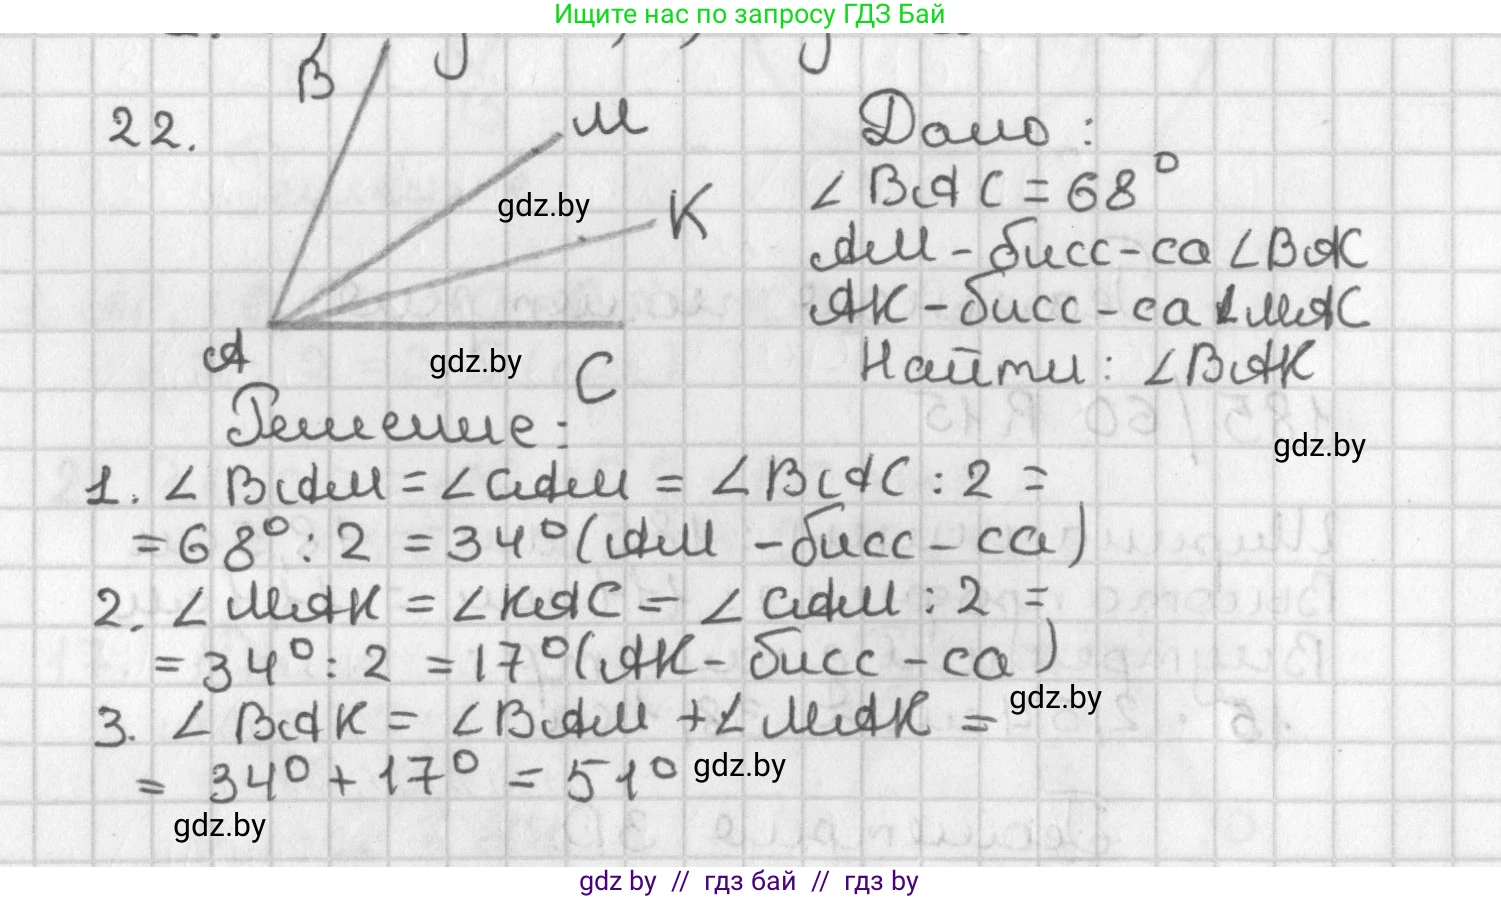 Ищите нас по запросу ГДЗ Бай
22.
B
M
K
A
C
gdz.by
gdz.by
Дано:
∠BAC = 68°
AM - бисс-са ∠BAK
AK - бисс-са ∠MAC
Найти: ∠BAK
gdz.by
Решение:
1. ∠BAM = ∠CAM = ∠BAC : 2 =
= 68° : 2 = 34° (AM - бисс-са)
2. ∠MAK = ∠KAC = ∠CAM : 2 =
= 34° : 2 = 17° (AK - бисс-са)
gdz.by
3. ∠BAK = ∠BAM + ∠MAK =
= 34° + 17° = 51°
gdz.by
gdz.by
gdz by // гдз бай // гдз by